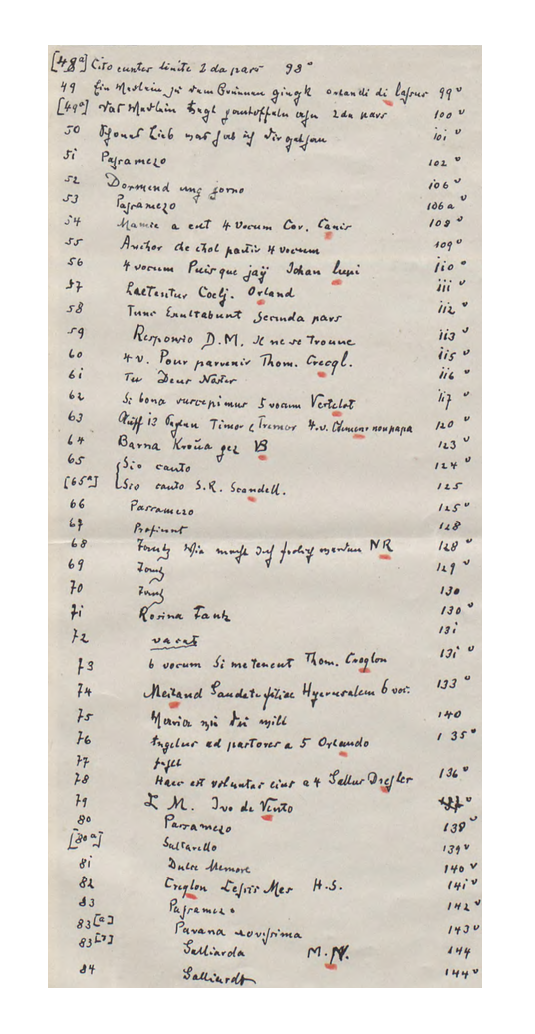 [48a] Cito cunter limite 2da pars 98v
49 Ein Medlein zu dem Brunnen gingk orlandi di lassus 99v
[49a] Das Medlein 2da pars 100v
50 Schones Lieb was hab ich dir gethan 101v
51 Passamezo 102v
52 Dormend ung jorno 106v
53 Passamezo 106av
54 Mamie a eut 4 vocum Cor. Canis 108v
55 4 vocum 109v
56 4 vocum Puis que jaÿ Johan Lupi 110v
57 Laetentur Coelj. Orland 111v
58 Tunc Exultabunt Secunda pars 112v
59 Responsio D.M. Il ne se trouue 113v
60 4 v. Pour parvenir Thom. Crecql. 115v
61 Tu Deus Noster 116v
62 Si bona suscepimus 5 vocum Verdelot 117v
63 Timor e Tremor 4.v. Clemens non papa 120v
64 Barna Kroña gez VB 123v
65 Sio canto 124v
[65a] Sio canto S.R. Scandell. 125
66 Passamezo 125v
67 Profiunt 128
68 Tantz Wie mocht Ich frolich werden NR 128v
69 Tantz 129v
70 Tantz 130
71 Rosina Tantz 130v
72 vacat 131
73 6 vocum Si me tenent Thom. Creqlon 131v
74 Meiland Gaudete filiae Hyerusalem 6 voc. 133v
75 Maria 140
76 Angelus ad pastores a 5 Orlando 135v
77
78 Haec est voluntas eius a 4 Gallus Dresler 136v
79 I. M. Ivo de Vento
80 Passamezo 138v
[80a] Saltarello 139v
81 Dulce Memore 140v
82 Creqlon Lesris Mes H.S. 141v
83 Passamezo 142v
83[a] Pavana novissima 143v
83[b] Galliarda M.N. 144
84 Galliardt 144v